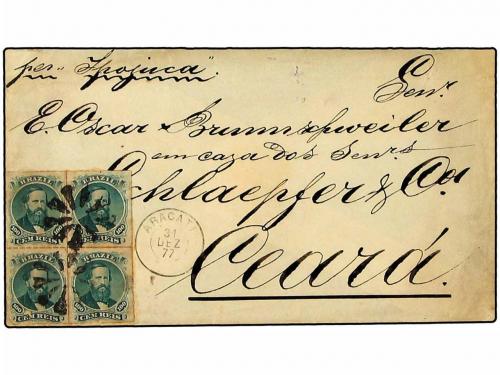 per "Ipojuca"
Senr.
E. Oscar Brunnschweiler
em caza dos Senrs.
Schlaepfer & Ca
Ceará.
ARACATY
31
DEZ
77
BRAZIL
100 100
CEM REIS
BRAZIL
100 100
CEM REIS
BRAZIL
100 100
CEM REIS
BRAZIL
100 100
CEM REIS